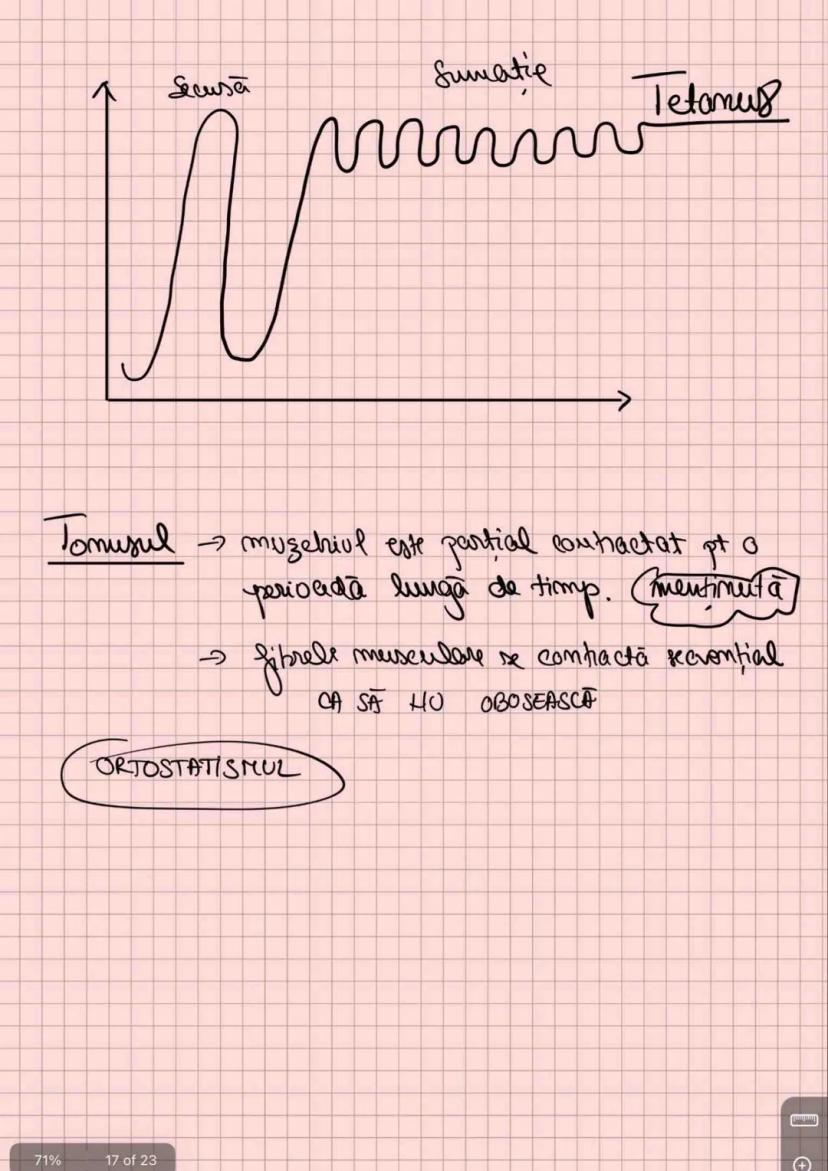 Secusă
Sumație
Tetanus
Tonusul → muschiul este parțial contractat pt o
perioadă lungă de timp. menținută
→ fibrele musculare se contractă secvențial
CA SĂ NU OBOSEASCĂ
ORTOSTATISMUL
71% 17 of 23